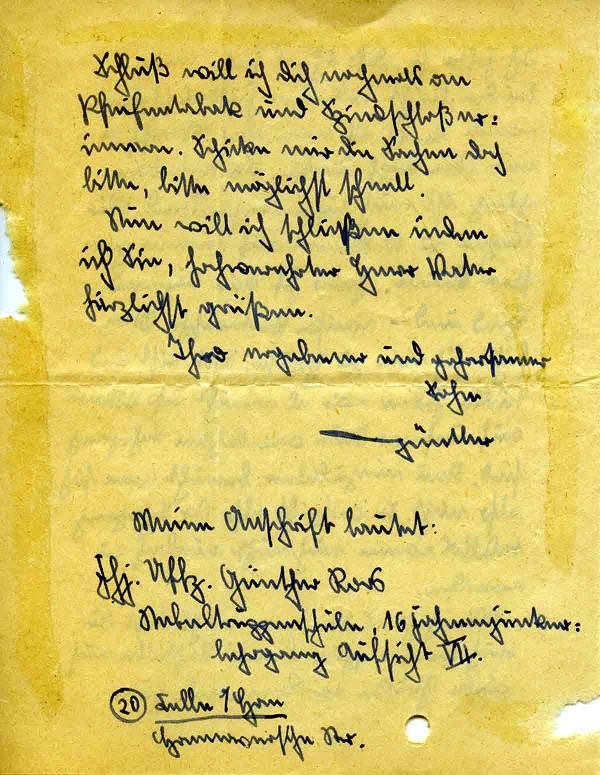 Schluß will ich Dich nochmals an
Pfeifentabak und Spindschloß er=
innern. Schicke mir die Sachen doch
bitte, bitte möglichst schnell.
Nun will ich schließen indem
ich Sie, hochverehrter Herr Vater
herzlichst grüßen.
Ihr ergebener und gehorsamer
Sohn
Günther
Meine Anschrift lautet:
Fhj. Uffz. Günther Roos
Nebeltruppenschule, 16 Fahnenjunker=
lehrgang Aufsicht VII.
(20) Celle / Han
Hannoversche Str.